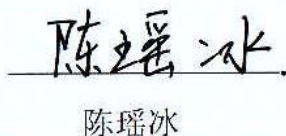 陈瑶冰
陈瑶冰